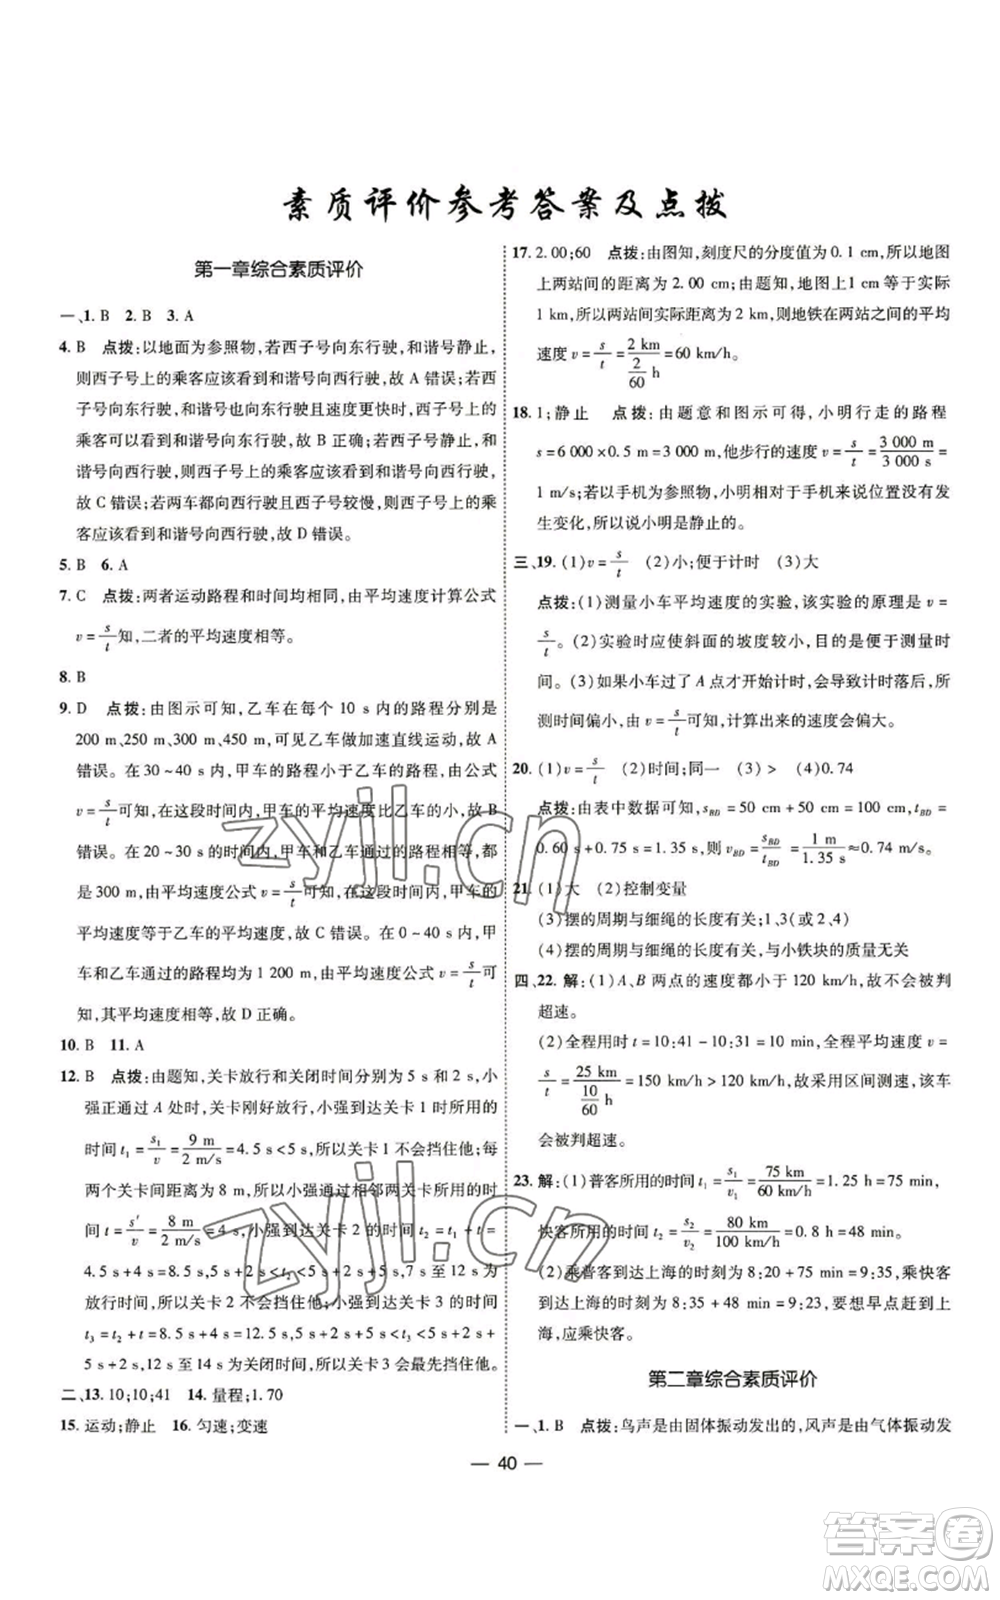 素质评价参考答案及点拨
第一章综合素质评价
一、1. B 2. B 3. A
4. B 点拨:以地面为参照物,若西子号向东行驶,和谐号静止,
则西子号上的乘客应该看到和谐号向西行驶,故 A 错误;若西
子号向东行驶,和谐号也向东行驶且速度更快时,西子号上的
乘客可以看到和谐号向东行驶,故 B 正确;若西子号静止,和
谐号向西行驶,则西子号上的乘客应该看到和谐号向西行驶,
故 C 错误;若两车都向西行驶且西子号较慢,则西子号上的乘
客应该看到和谐号向西行驶,故 D 错误。
5. B 6. A
7. C 点拨:两者运动路程和时间均相同,由平均速度计算公式
v=s/t知,二者的平均速度相等。
8. B
9. D 点拨:由图示可知,乙车在每个 10 s 内的路程分别是
200 m、250 m、300 m、450 m,可见乙车做加速直线运动,故 A
错误。在 30~40 s 内,甲车的路程小于乙车的路程,由公式
v=s/t可知,在这段时间内,甲车的平均速度比乙车的小,故 B
错误。在 20~30 s 的时间内,甲车和乙车通过的路程相等,
都是 300 m,由平均速度公式 v=s/t可知,在这段时间内,甲车的
平均速度等于乙车的平均速度,故 C 错误。在 0~40 s 内,甲
车和乙车通过的路程均为 1 200 m,由平均速度公式 v=s/t可
知,其平均速度相等,故 D 正确。
10. B 11. A
12. B 点拨:由题知,关卡放行和关闭时间分别为 5 s 和 2 s,小
强正通过 A 处时,关卡刚好放行,小强到达关卡 1 时所用的
时间 t₁=s₁/v=9 m/2 m/s=4.5 s<5 s,所以关卡 1不会挡住他;每
两个关卡间距离为 8 m,所以小强通过相邻两个关卡所用的时
间 t=s'/v=8 m/2 m/s=4 s,小强到达关卡 2 的时间 t₂=t₁+t=
4.5 s+4 s=8.5 s,因 7 s<8.5 s<5 s+2 s+5 s=12 s,为
放行时间,所以关卡 2 不会挡住他;小强到达关卡 3 的时间
t₃=t₂+t=8.5 s+4 s=12.5 s,因 5 s+2 s+5 s<12.5 s<
5 s+2 s+12 s,12 s 至 14 s 为关闭时间,所以关卡 3 会最早挡住他。
二、13. 10;10;41 14. 量程;1.70
15. 运动;静止 16. 匀速;变速
17. 2.00;60 点拨:由图知,刻度尺的分度值为 0.1 cm,所以地图
上两站间的距离为 2.00 cm;由题知,地图上1 cm 等于实际
1 km,所以两站间的实际距离为2 km,则地铁在两站之间的平均
速度 v=s/t=2 km/(2/60 h)=60 km/h。
18. 1;静止 点拨:由题意和图示可得,小明行走的路程
s=6 000×0.5 m=3 000 m,他步行的速度 v=s/t=3 000 m/3 000 s=
1 m/s;若以手机为参照物,小明相对于手机来说位置没有发
生变化,所以说小明是静止的。
三、19. (1)v=s/t (2)小;便于计时 (3)大
点拨:(1)测量小车平均速度的实验,该实验的原理是 v=
s/t。(2)实验时应使斜面的坡度较小,目的是便于测量时
间。(3)如果小车过了 A 点才开始计时,会导致计时落后,所
测时间偏小,由 v=s/t可知,计算出来的速度会偏大。
20. (1)v=s/t (2)时间;同一 (3)> (4)0.74
点拨:由表中数据可知,s_BD=50 cm+50 cm=100 cm,t_BD=
0.60 s+0.75 s=1.35 s,则 v_BD=s_BD/t_BD=1 m/1.35 s≈0.74 m/s。
21. (1)大 (2)控制变量
(3)摆的周期与细绳的长度有关;1、3(或 2、4)
(4)摆的周期与细绳的长度有关,与小铁块的质量无关
四、22. 解:(1)A、B 两点的速度都小于 120 km/h,故不会被判
超速。
(2)全程用时 t=10:41-10:31=10 min,全程平均速度 v=
s/t=25 km/(10/60 h)=150 km/h>120 km/h,故采用区间测速,该车
会被判超速。
23. 解:(1)普客所用的时间 t₁=s₁/v₁=75 km/60 km/h=1.25 h=75 min,
快客所用的时间 t₂=s₂/v₂=80 km/100 km/h=0.8 h=48 min。
(2)乘普客到达上海的时刻为 8:20+75 min=9:35,乘快客
到达上海的时刻为 8:35+48 min=9:23,要想早点赶到上
海,应乘快客。
第二章综合素质评价
一、1. B 点拨:鸟声是由固体振动发出的,风声是由气体振动发
— 40 —
zyjl.cn
zyjl.cn
答案圈
MXQE.COM